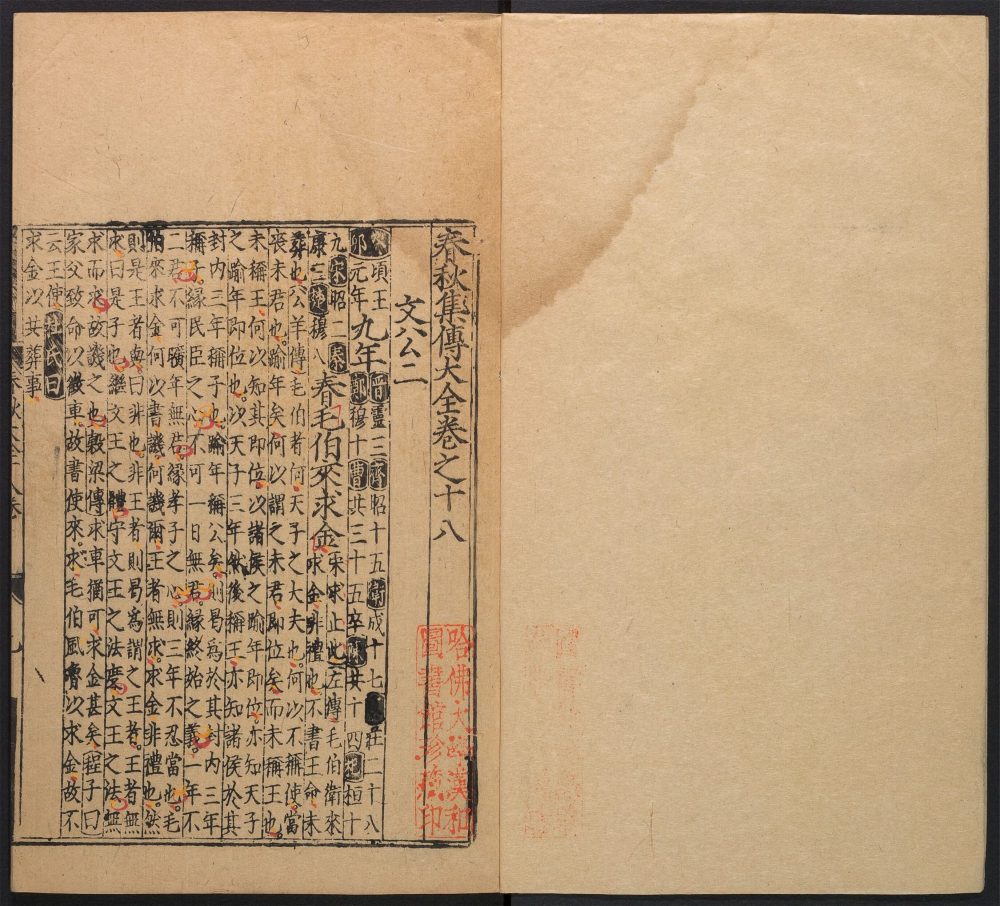 春秋集傳大全卷之十八
文公二
癸頃王
卯元年
九年
晉靈三齊昭十五衛成十七蔡莊二十八
鄭穆十曹共三十五卒陳共十四杞桓十
九宋昭二秦
康三楚穆八
春毛伯來求金
來求止此左傳毛伯衛來
求金非禮也不書王命未
葬也公羊傳毛伯者何天子之大夫也何以不稱使當
喪未君也踰年矣何以謂之未君即位矣而未稱王也
未稱王何以知其即位以諸侯之踰年即位亦知天子
之踰年即位也以天子三年然後稱王亦知諸侯於其
封内三年稱子也踰年稱公矣則曷爲於其封内三年
稱子緣民臣之心不可一日無君緣終始之義一年不
二君不可曠年無君緣孝子之心則三年不忍當也毛
伯來求金何以書譏何譏爾王者無求求金非禮也然
則是王者與曰非也非王者則曷爲謂之王者王者無
求曰是子也繼文王之體守文王之法度文王之法無
求而求故譏之也穀梁傳求車猶可求金甚矣程子曰
家父致命以徵車故書使來求毛伯風魯以求金故不
云王使杜氏曰
求金以共葬事
哈佛大學漢和
圖書館珍藏印